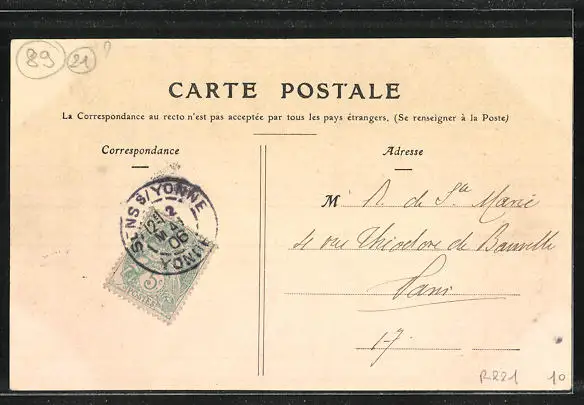 89 21
CARTE POSTALE
La Correspondance au recto n'est pas acceptée par tous les pays étrangers. (Se renseigner à la Poste)
Correspondance
Adresse
SENS S/YONNE
12
2
06
YONNE
5c
POSTES
M R. de Ste Marie
4 rue Théodore de Banville
Paris
17
R221 10